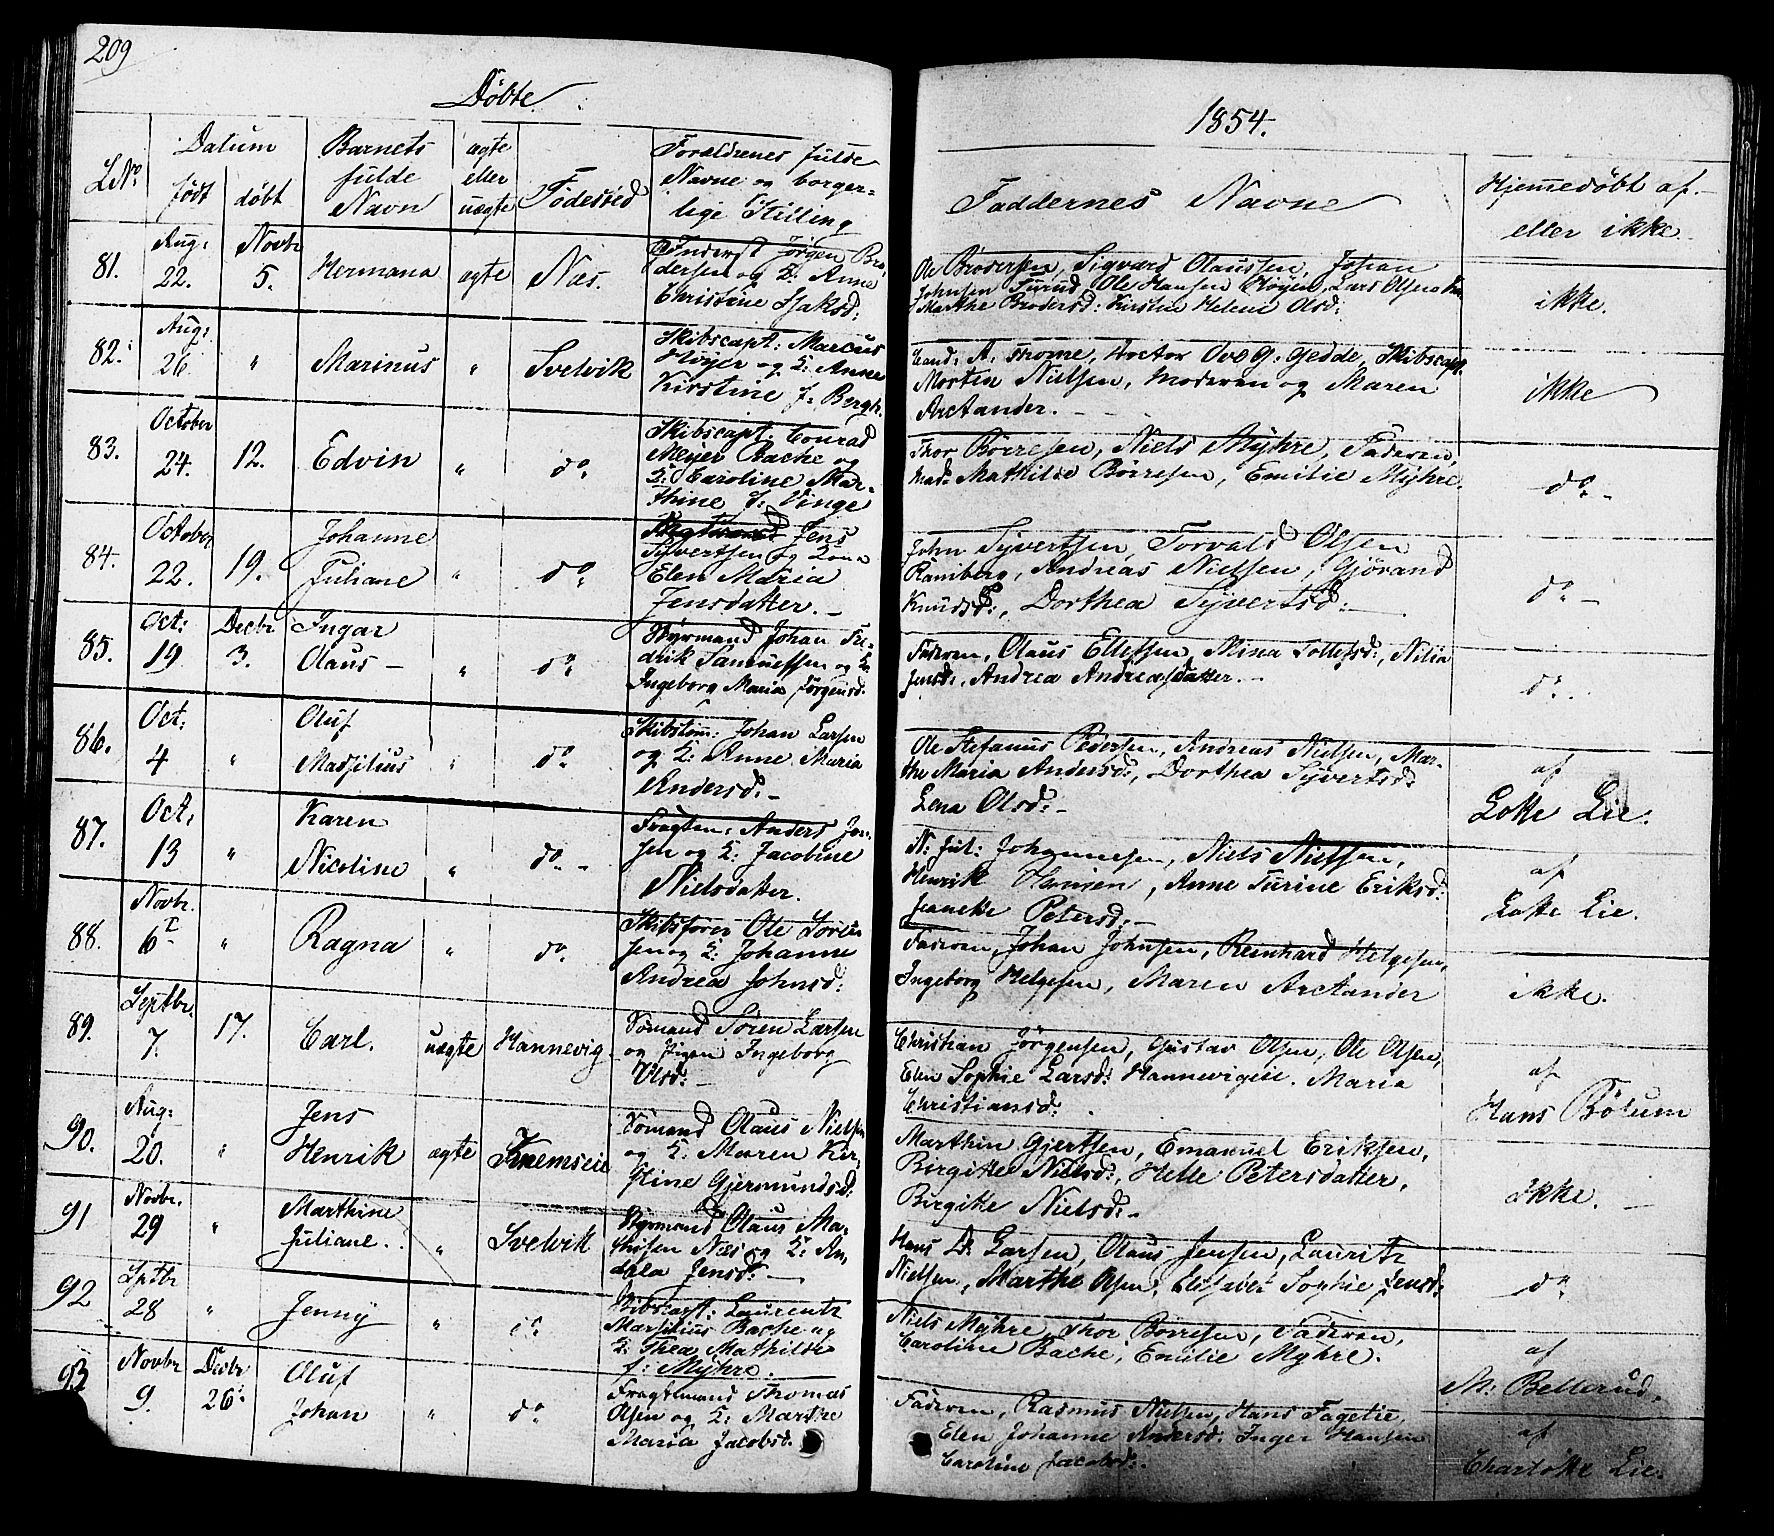 209
Döbte.
1854.
L№
Datum
födt
döbt
Barnets
fulde
Navn
ægte
eller
uægte
Födested
Forældrenes fulde
Navne og borger-
lige Stilling
Faddernes Navne
Hjemmedöbt af -
eller ikke
81.
Aug:
22.
Novbr
5.
Hermana
ægte
Næs.
Inderst Jörgen Bro-
dersen og K: Anne
Christine Isaksd:
Ole Brodersen, Sigvard Olaussen, Johan
Johnsen Furud, Ole Hansen Höyen, Lars Olsen
Marthe Brodersd: Kirstine Helene Olsd:
ikke.
82.
Aug:
26.
"
Marinus
"
Svelvik
Skibscapt: Marcus
Höyer og K: Anne
Kirstine f: Bergh.
Cand: A. Thome, Doctor Ove G: Gedde, Skibscapt.
Morten Nielsen, Moderen og Maren
Arctander. -
ikke
83.
October
24.
12.
Edvin
"
do.
Skibscapt. Conrad
Meyer Bache og
K: Caroline Mar-
thine f: Vinge
Thor Börresen, Niels Myhre, Faderen,
Mad: Mathilde Börresen, Emilie Myhre.
do -
84.
October
22.
19.
Johanne
Juliane
"
do.
Jens
Syvertsen og Kone
Elen Maria
Jensdatter. -
John Syvertsen, Torvald Olsen
Ramberg, Andreas Nielsen, Gjörand
Knudsd:, Dorthea Syvertsd:
do -
85.
Oct:
19
Decbr
3.
Ingar
Olaus -
"
do.
Styrmand Johan Fre-
drik Samuelsen og K:
Ingeborg Maria Jörgensd.
Faderen, Olaus Ellefsen, Mina Tollefsd:, Nilia
Jensd:, Andrea Andreasdatter. -
do.
86.
Oct:
4
"
Oluf
Marsilius
"
do.
Skibstöm: Johan Larsen
og K: Anne Maria
Andersd. -
Ole Stefanus Pedersen, Andreas Nielsen, Mar-
the Maria Andersd:, Dorthea Syvertsd:
Lena Olsd: -
af
Lotte Lie.
87.
Oct,
13
"
Karen
Nicoline
"
do. -
Fragtem: Anders Jen-
sen og K: Jacobine
Nielsdatter.
N: Jul: Johannesen, Niels Nielsen,
Henrik Hansen, Anne Turine Eriksd:
Jeanette Petersd: -
af
Lotte Lie.
88.
Novbr.
6
"
Ragna
"
do.
Skibsförer Ole Sören-
sen og K: Johanne
Andrea Johnsd:
Faderen, Johan Johnsen, Reinhard Helgesen,
Ingeborg Helgesen, Maren Arctander
ikke.
89.
Septbr.
7.
17.
Carl.
uægte
Hannevig
Sömand Sören Larsen
og Pigen Ingeborg
Olsd: -
Christian Jörgensen, Gustav Olsen, Ole Olsen,
Elen Sophie Larsd: Hannevigeie. Maria
Christiansd:
af
Hans Bölum
90.
Aug:
20.
"
Jens
Henrik
ægte
Knemseie
Sömand Olaus Nielsen
og K: Maren Kir-
stine Gjermundsd:
Marthin Gjertsen, Emanuel Eriksen,
Birgitte Nielsd:, Helle Petersdatter,
Birgitte Nielsd: -
Ikke. -
91
Novbr.
29
"
Marthine
Juliane.
"
Svelvik
Styrmand Olaus Ma-
thisen Næs og K: An-
dala Jensd: -
Hans L. Larsen, Olaus Jensen, Lauritz
Nielsen, Marthe Olsen, Elisabet Sophie Jensd:
do
92
Sptbr
28
"
Jenny
"
do.
Skibscapt: Laurentz
Marsilius Bache og
K: Thea Mathilde
f: Myhre.
Niels Myhre, Thor Börresen, Faderen,
Caroline Bache, Emilie Myhre.
af
M: Bellerud.
93
Novbr
9.
Decbr
26.
Oluf
Johan
"
do.
Fragtemand Thomas
Olsen og K: Marthe
Maria Jacobsd.
Faderen, Rasmus Nielsen, Hans Fagetie,
Elen Johanne Andersd. Inger Hansen
Caroline Jacobsd:.
af
Charlotte Lie.